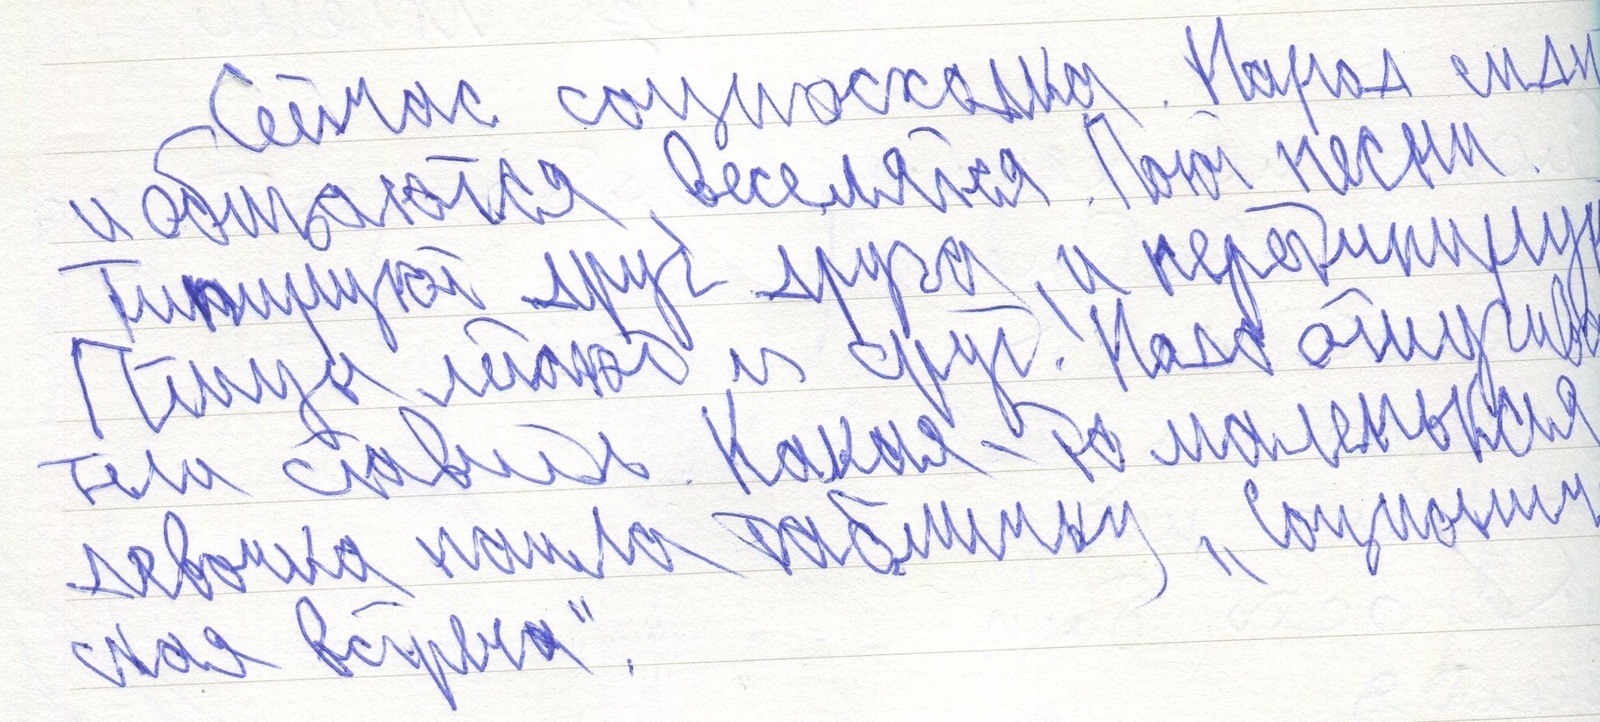 Сейчас соционосходка. Народ сиди
и общаются, веселятся. Поют песни.
Типируют друг друга, и перетипируют
Птицы летают и срут! Надо отпугива
тели ставить. Какая-то маленькая
девочка нашла табличку, „Соционич
ская встреча".